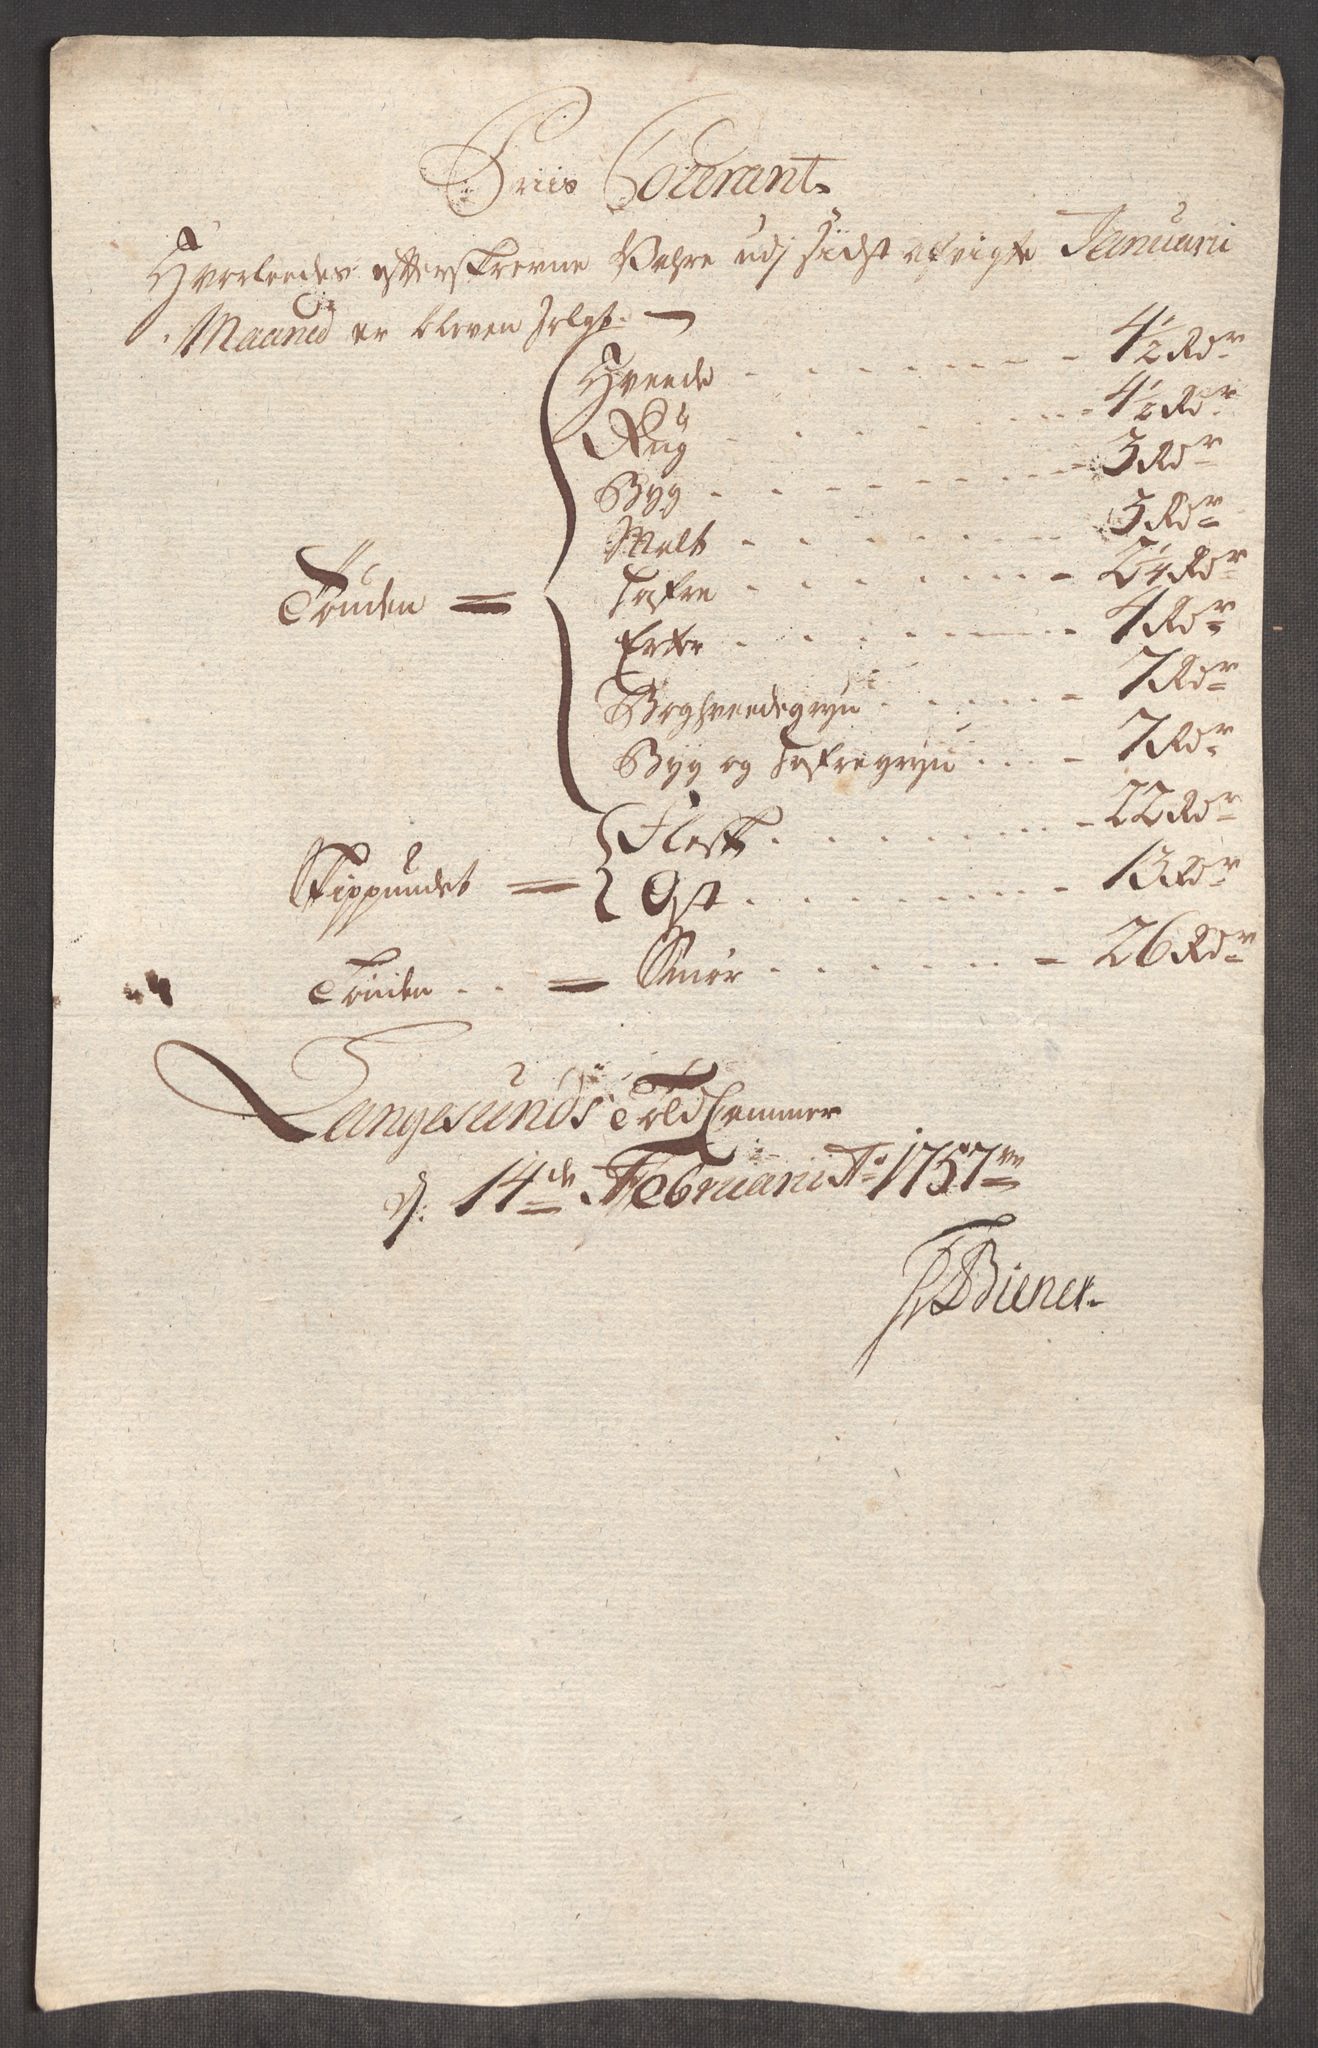 Priis Courant
Hvorleedes efterskrevne Vahre udj sidst afvigte Januarii
Maaned er bleven solgt.
Tönden = Hveede - - - 4 1/2 Rdr
Rug - - - 4 1/2 Rdr
Byg - - - 3 Rdr
Malt - - - 3 Rdr
Hafre - - - 2 1/4 Rdr
Erter - - - 4 Rdr
Boghveedegryn - - - 7 Rdr
Byg og Hafregryn - - - 7 Rdr
Skippundet = Flesk - - - 22 Rdr
Ost - - - 13 Rdr
Tönden - - = Smör - - - 26 Rdr
Langesunds Told Cammer
d: 14de Februarii Ao 1757
Biener.